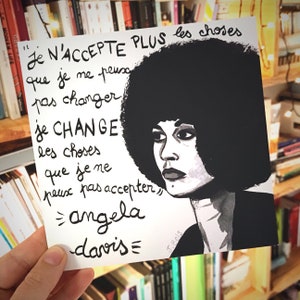 "je N'ACCEPTE PLUS les choses
que je ne peux
pas changer,
je CHANGE
les choses
que je ne
peux pas accepter"
angela
davis